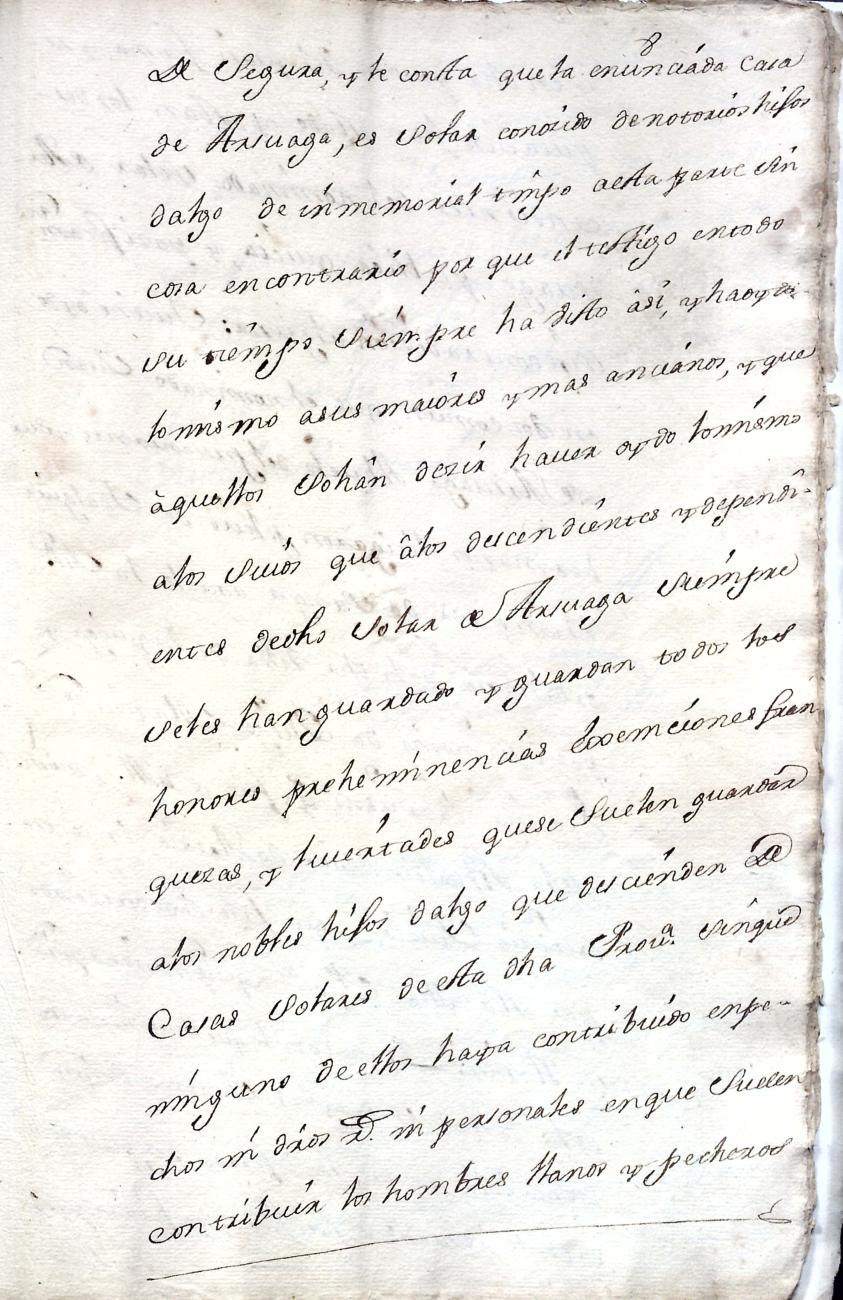 8
de Segura, y le consta que la enunciada Casa
de Arsuaga, es Solar conozido de notorios hijos
dalgo de inmemorial tmpo a esta parte sin
cosa en contrario por que el testigo en todo
su tiempo Siempre ha visto asi, y ha oydo
lo mismo a sus maiores y mas ancianos, y que
aquellos Sohan dezir haver oydo lo mismo
a los suios que a los descendientes y dependi-
entes de dho Solar de Arsuaga Siempre
se les han guardado y guardan todos los
honores preheminencias Exxemciones fran
quezas, y livertades que se Suelen guardar
a los nobles hijos dalgo que descienden de
Casas Solares de esta dha Prova. sin que
ninguno de ellos haya contribuido en pe-
chos ni dros Rs. ni personales en que Suelen
contribuir los hombres llanos y pecheros